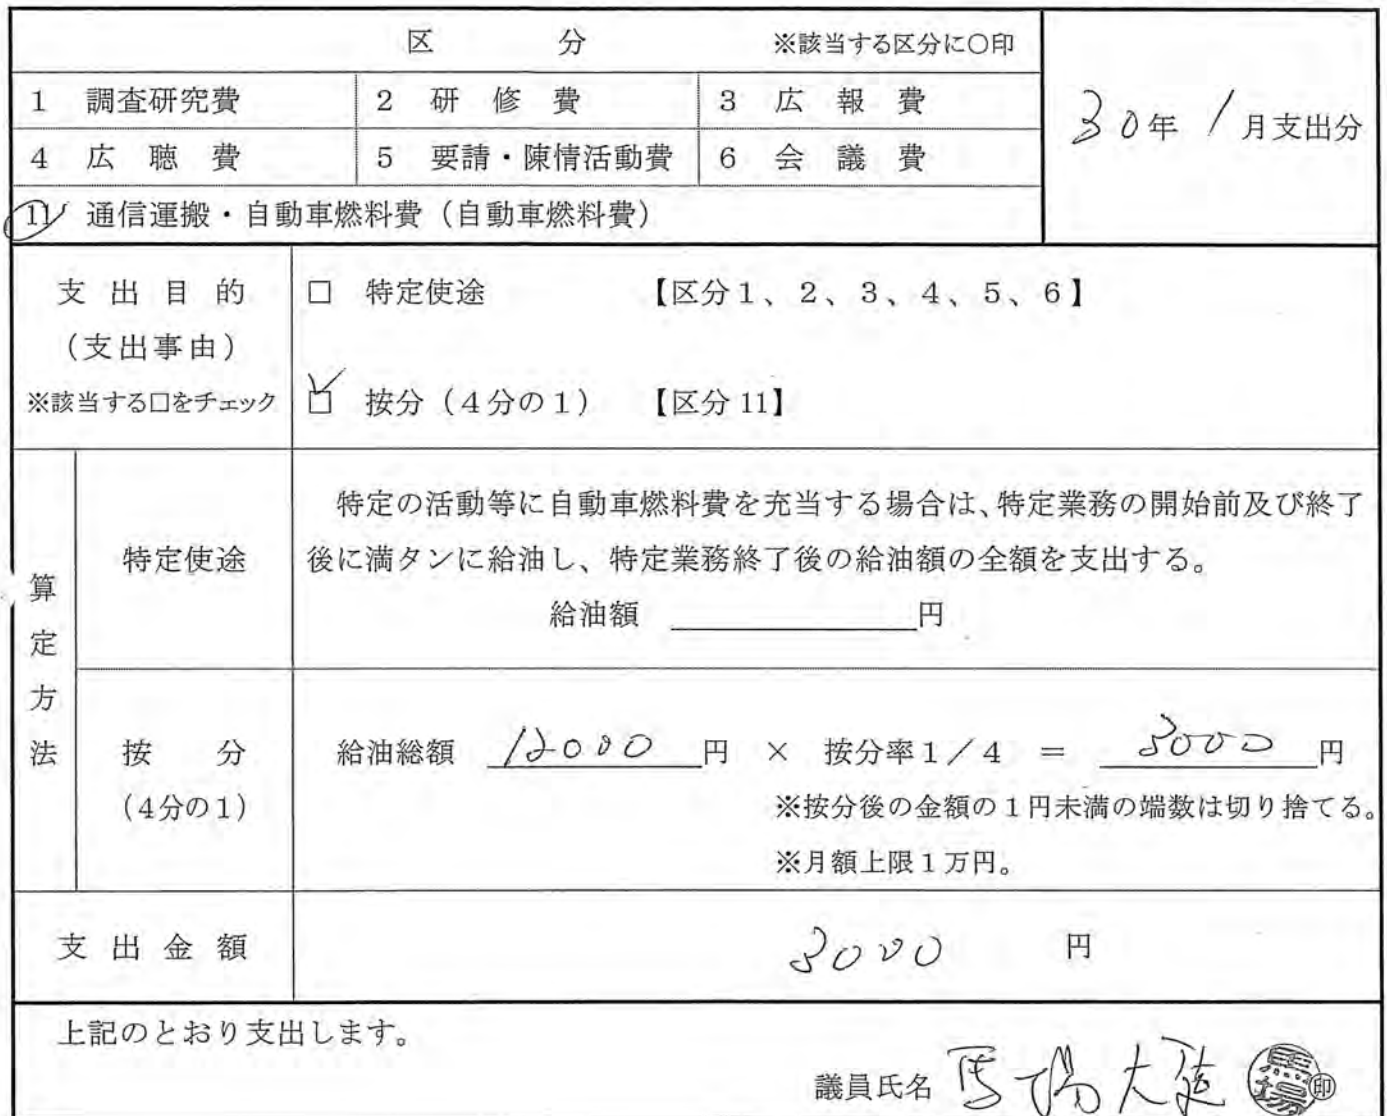 区 分 ※該当する区分に○印
1 調査研究費 2 研修費 3 広報費
30年 1月支出分
4 広聴費 5 要請・陳情活動費 6 会議費
11 通信運搬・自動車燃料費（自動車燃料費）
支出目的
（支出事由）
※該当する口をチェック
□ 特定使途 【区分1、2、3、4、5、6】
☑ 按分（4分の1） 【区分11】
算定方法
特定使途
特定の活動等に自動車燃料費を充当する場合は、特定業務の開始前及び終了
後に満タンに給油し、特定業務終了後の給油額の全額を支出する。
給油額 円
按分
（4分の1）
給油総額 12000 円 × 按分率1／4 ＝ 3000 円
※按分後の金額の1円未満の端数は切り捨てる。
※月額上限1万円。
支出金額 3000 円
上記のとおり支出します。
議員氏名 馬場大 馬場 印